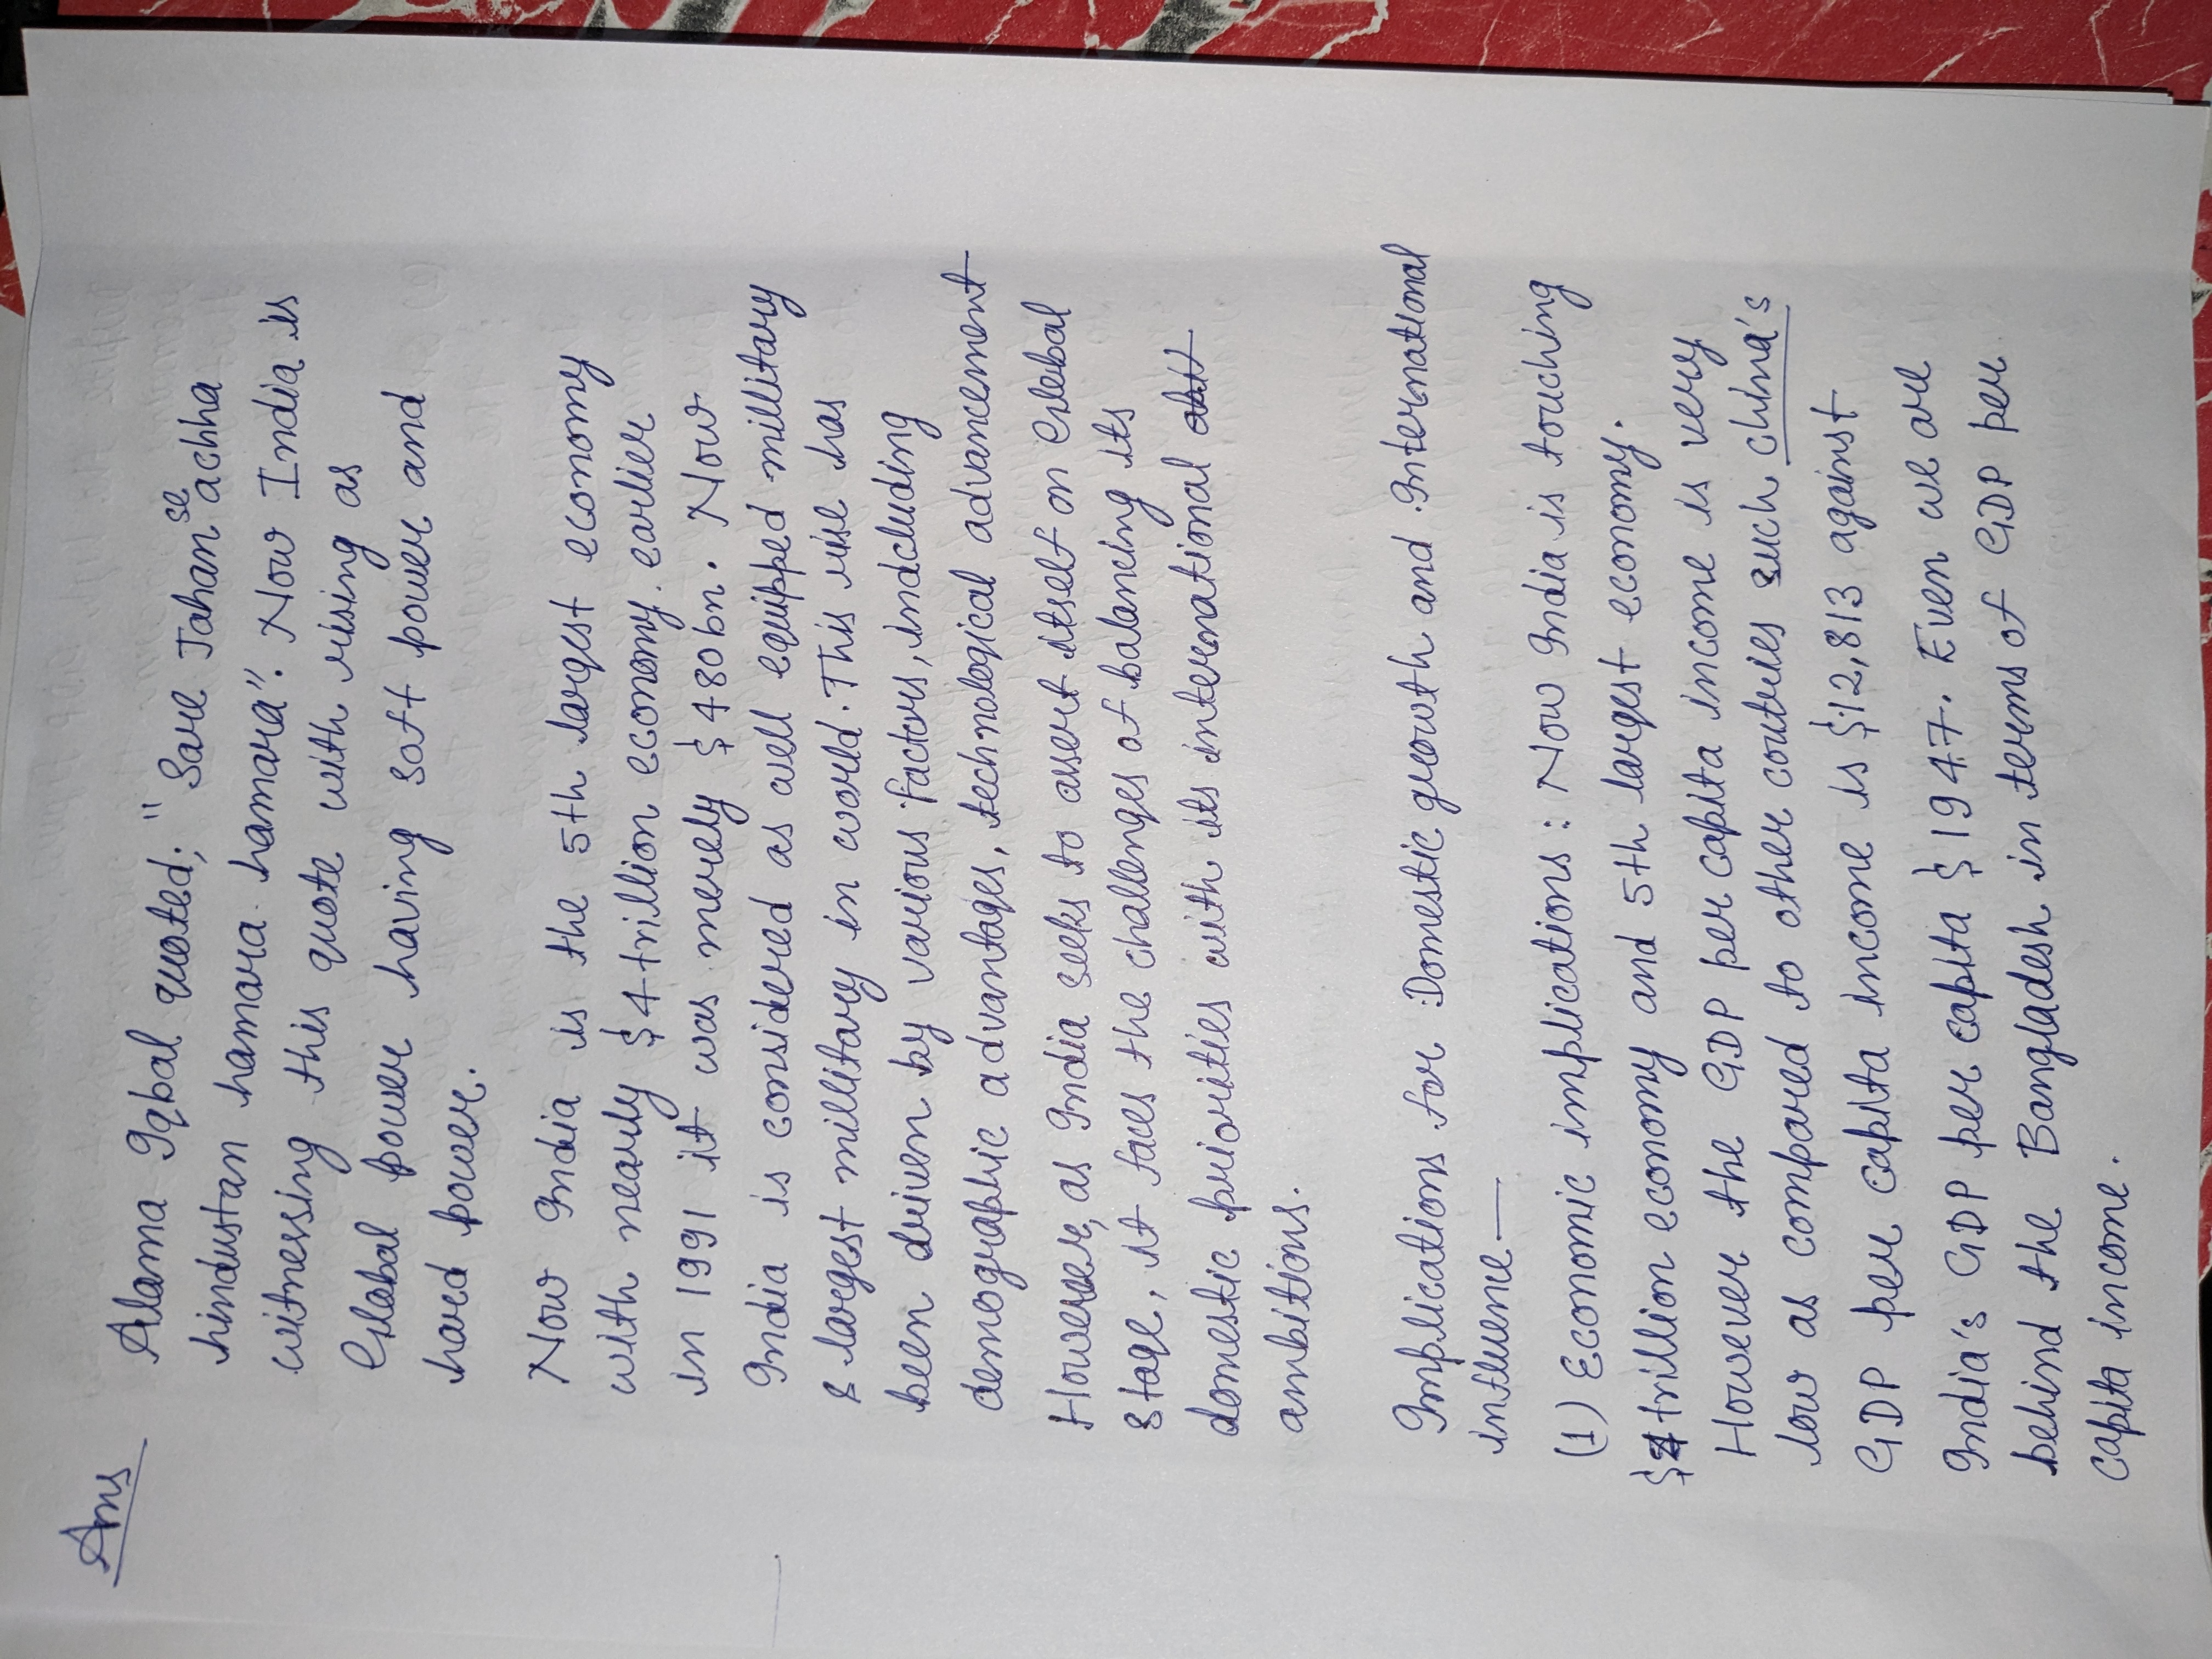 Ans
Alama Iqbal quoted; "Sare Jahan se achha
hindustan hamara hamara". Now India is
witnessing this quote with rising as
Global power having soft power and
hard power.
Now India is the 5th largest economy
with nearly $4 trillion economy. earlier
in 1991 it was merely $480bn. Now
India is considered as well equipped millitary
& largest millitary in world. This rise has
been driven by various factors, including
demographic advantages, technological advancement
However, as India seeks to assert itself on Global
Stage, it faces the challenges of balancing its
domestic priorities with its international
ambitions.
Implications for Domestic growth and International
influene—
(1) Economic implications : Now India is touching
$4 trillion economy and 5th largest economy.
However the GDP per capita income is very
low as compared to other coutries such china's
GDP per capita income is $12,813 against
India's GDP per capita $1947. Even we are
behind the Bangladesh in terms of GDP per
capita income.